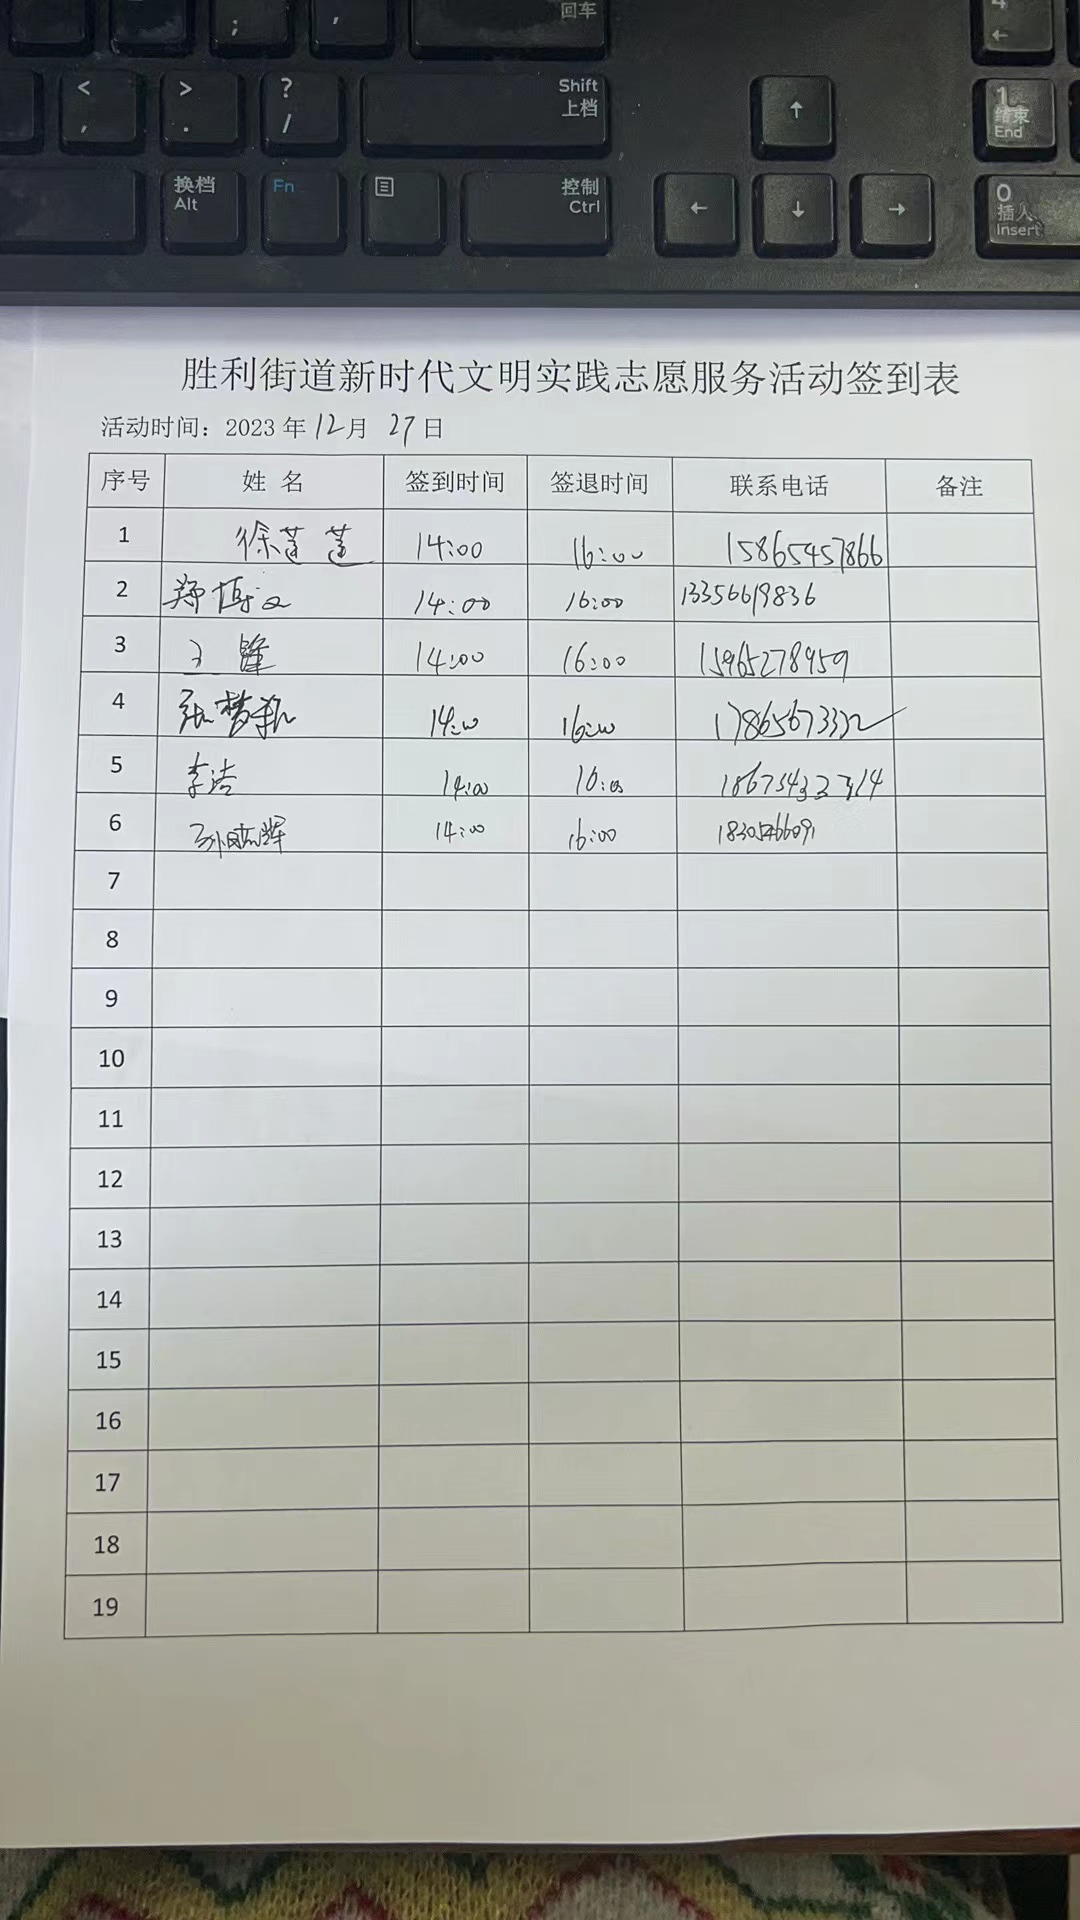 回车
;
,
4
←
<
,
>
.
?
/
Shift
上档
↑
1
结束
End
换档
Alt
Fn
控制
Ctrl
←
↓
→
0
插入
Insert
胜利街道新时代文明实践志愿服务活动签到表
活动时间：2023 年 12 月 27 日
序号 姓 名 签到时间 签退时间 联系电话 备注
1 徐莲莲 14:00 16:00 15865457866
2 14:00 16:00 13356619836
3 王隆 14:00 16:00 15965278959
4 14:00 16:00
5 李洁 14:00 16:00
6 14:00 16:00
7
8
9
10
11
12
13
14
15
16
17
18
19